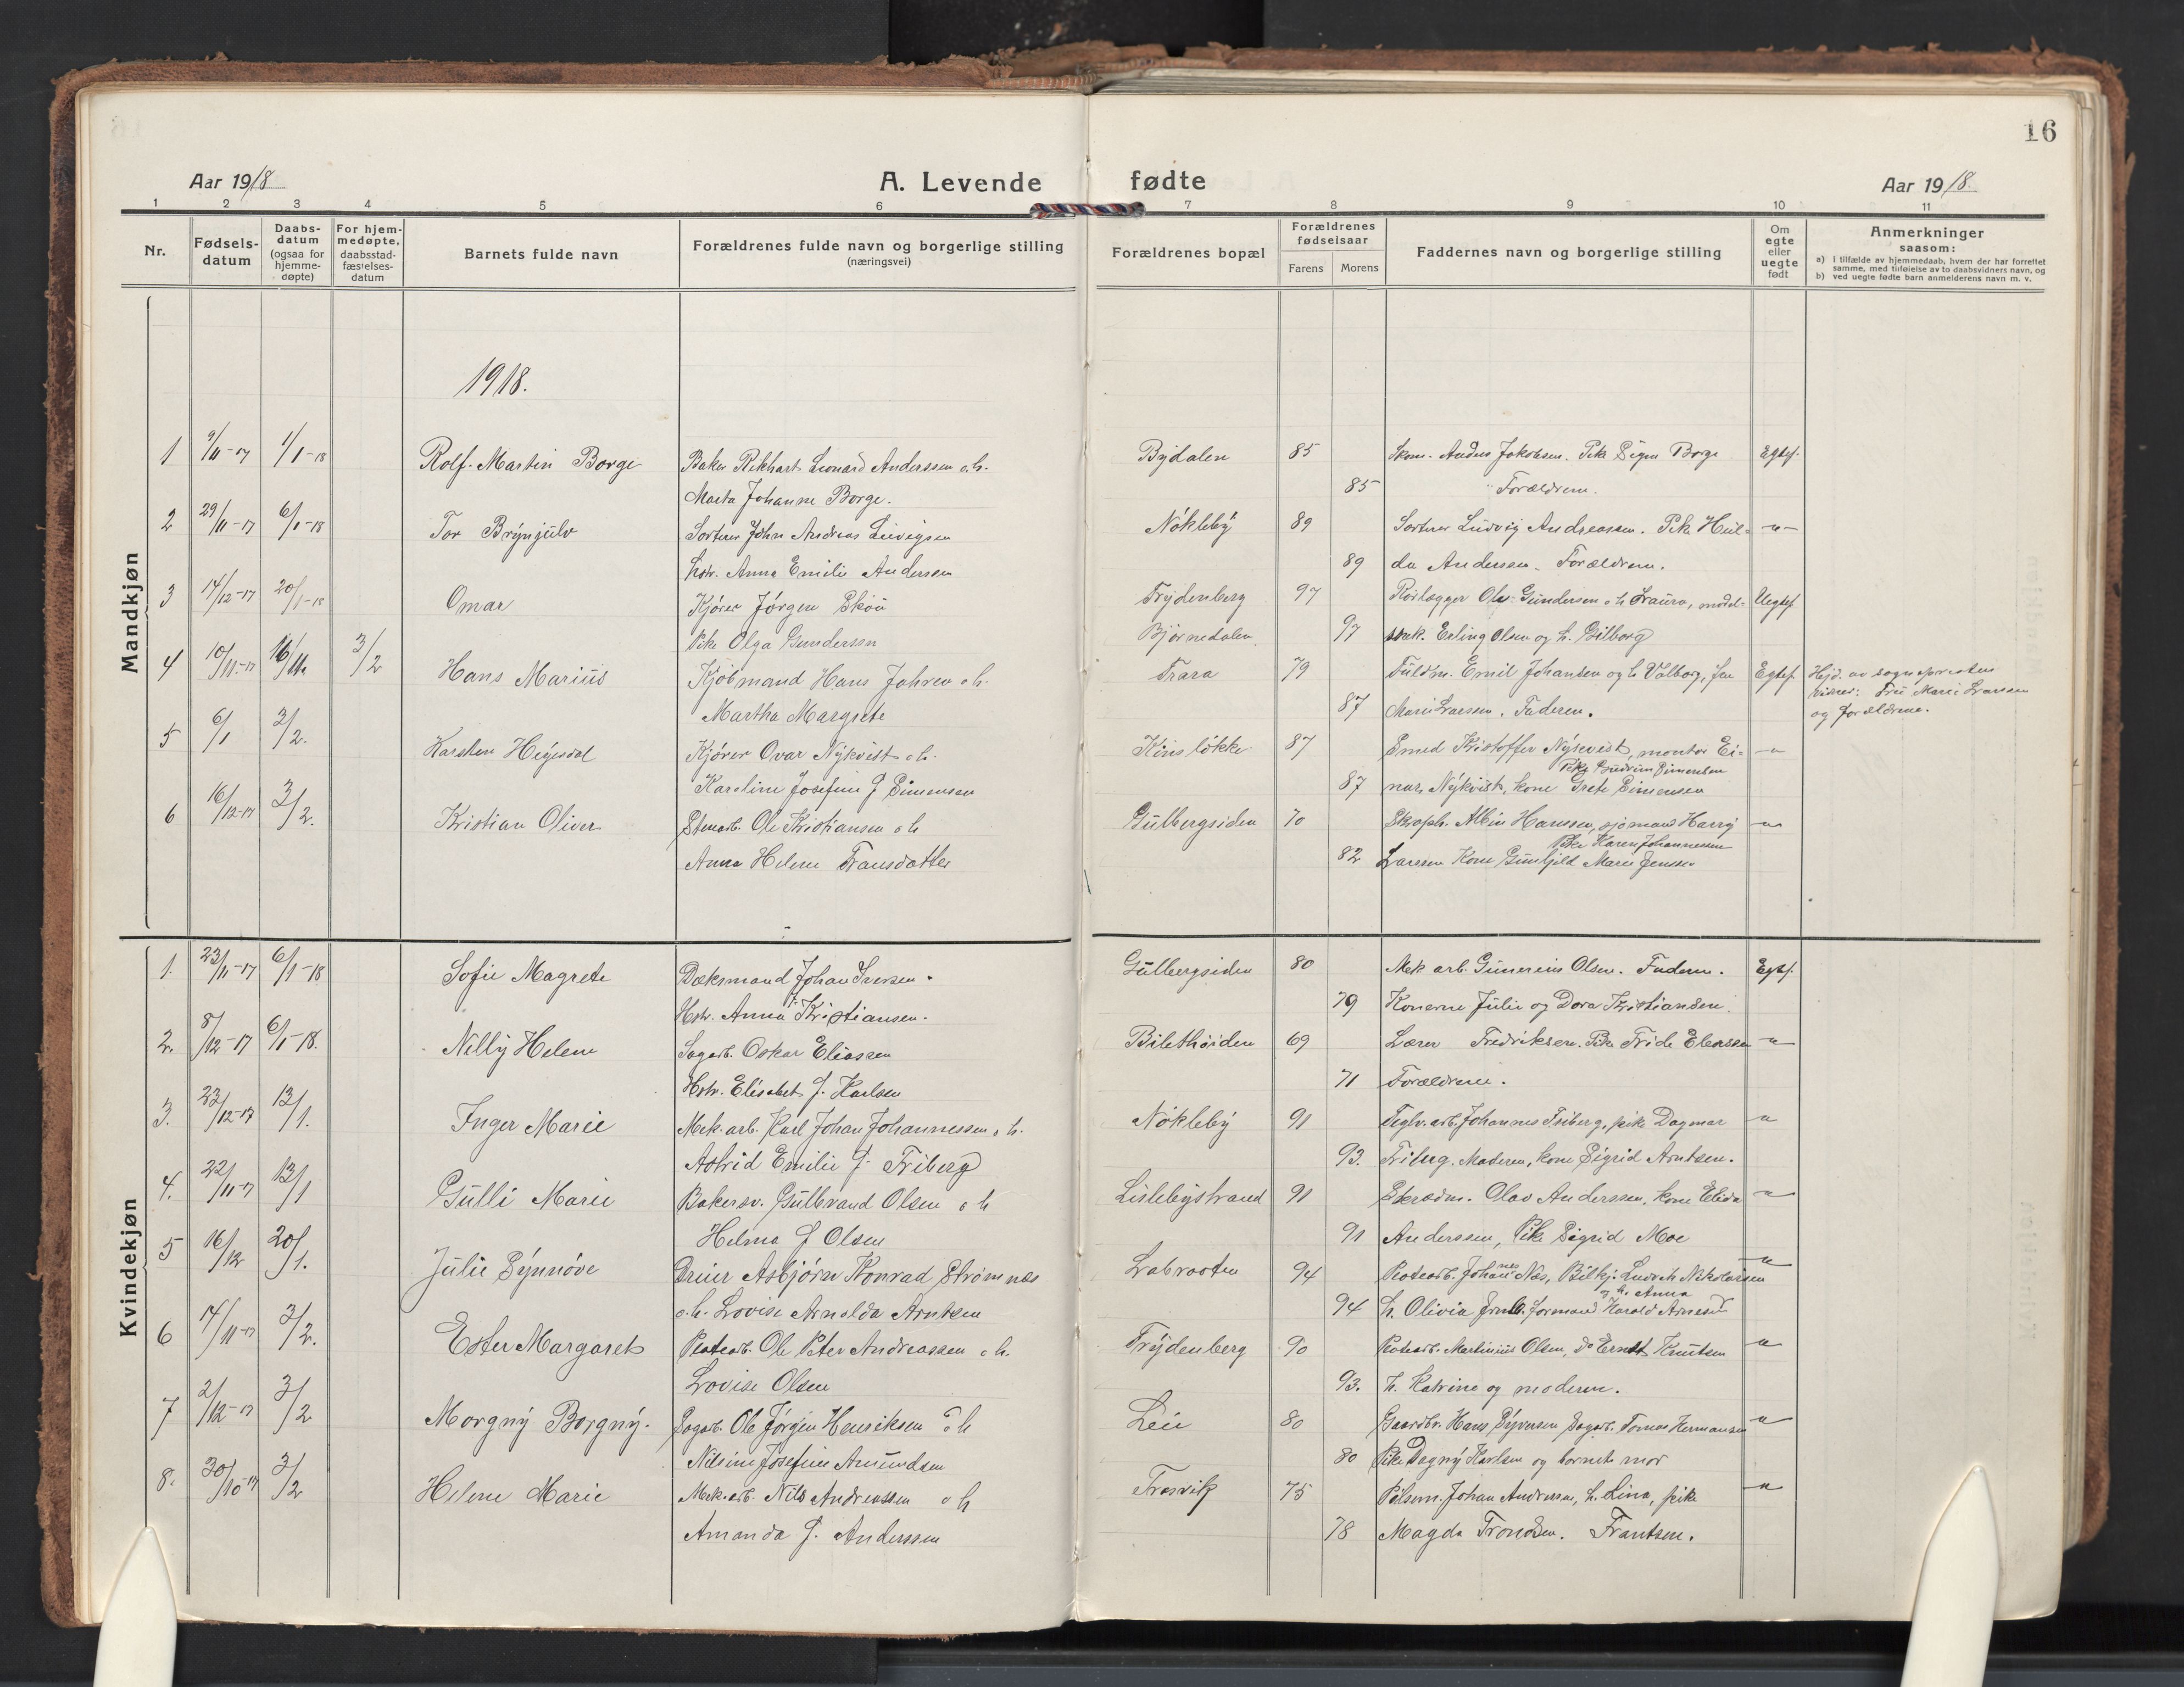 16
Aar 1918
A. Levende fødte
Aar 1918.
1 2 3 4 5 6 7 8 9 10 11
Nr.
Fødsels-
datum
Daabs-
datum
(ogsaa for
hjemme-
døpte)
For hjem-
medøpte,
daabsstad-
fæstelses-
datum
Barnets fulde navn
Forældrenes fulde navn og borgerlige stilling
(næringsvei)
Forældrenes bopæl
Forældrenes
fødselsaar
Farens Morens
Faddernes navn og borgerlige stilling
Om
egte
eller
uegte
født
Anmerkninger
saasom:
a) I tilfælde av hjemmedaab, hvem der har forrettet
samme, med tilføielse av to daabsvidners navn, og
b) ved uegte fødte barn anmelderens navn m. v.
1918.
Mandkjøn
1 9/11-17 1/1-18 Rolf. Martin Borge Baker Rikhart Leonard Anderssen o. h. Bydalen 85 Skom. Anders Jakobsen. Pike Signe Borge Egtef.
Marta Johanne Borge. 85 Forældrene.
2 29/11-17 6/1-18 Tor Brynjulv Sorterer John Andreas Ludvigsen Nökleby 89 Sorterer Ludvig Andreassen. Pike Hul- -"-
hstr. Anna Emilie Anderssen 89 da Andersen. Forældrene.
3 14/12-17 20/1-18 Omar Kjører Jørgen Skou Frydenberg 97 Rörlægger Ole Gundersen o h Laura, Uegtef
Pike Olga Gunderssen Bjørnedalen 97 Erling Olsen og h. Gilborg
4 10/11-17 16/11 3/2 Hans Marius Kjöbmand Hans Johren o. h. Trara 79 Fuldm. Emil Johansen og h Valborg, fru Egtef Hjd. av sognepresten
Martha Margrete 87 Marie Larssen. Faderen. Vidner: Fru Marie Larssen
og forældrene.
5 6/1 3/2. Karsten Kjører Ovar Nykvist o. h. Kirislökke 87 Smed Kristoffer montør Ei- -"-
Pike Gudrun Simensen
Karoline Josefine f Simensen 87 nar Nykvist, kone Grete Simensen
6 16/12-17 3/2. Kristian Oliver Stenarb. Ole Kristiansen o h Gulbergsiden 70 Albin Hanssen, sjømand Harry -"-
Pike Karen Johannessen
Anna Helene Fransdatter 82 Larssen Kone Gunhild Marie Jensen
Kvindekjøn
1. 23/11-17 6/1-18 Sofie Magrete Dæksmand Johan Iversen. Gulbergsiden 80 Mek arb. Gunerius Olsen. Faderen. Egtef.
Hstr. Anna Kristiansen. 79 Konerne Julie og Dora Kristiansen.
2. 8/12-17 6/1-18. Nelly Helene Sagarb. Oskar Eliassen Bilethøiden 69 Lærer Fredriksen. Pike Fride Eliassen -"-
Hstr. Elisabet f. Karlsen 71 Forældrene.
3. 23/12-17 13/1. Inger Marie Mek. arb. Karl Johan Johannessen o. h. Nökleby 91 Teglv. arb. Johannes Friberg, pike Dagmar -"-
Astrid Emilie f. Friberg 93. Friberg. Moderen, kone Sigrid Arntsen.
4. 22/11-17 13/1 Gulli Marie Bakersv. Gulbrand Olsen o h Lislebystrand 91 Skrædm. Olav Anderssen, kone Elida -"-
Helma f Olsen 91 Anderssen, Pike Sigrid Moe
5 16/12 20/1. Julie Synnöve Asbjørn Konrad Strømnæs Labraaten 94 Johannes Næs, Ludvik Nikolaisen -"-
og h. Anna
o. h. Lovise Arnolda Arntsen 94 h. Olivia formand Harald Arnesen
6 14/11-17 3/2. Ester Margaret Ole Peter Andreassen o. h. Frydenberg 90 Martinius Olsen, Do Ernst Knutsen -"-
Lovise Olsen 93. h. Katrine og moderen.
7 2/12-17 3/2 Morgny Borgny. Sagarb. Ole Jørgen Henriksen o h Leie 80 Gaardbr. Hans Syversen, Sagarb. Tomas Hermansen -"-
Nilsine Josefine Amundsen 80 Pike Dagny Karlsen og barnets mor
8. 30/10-17 3/2 Helene Marie Mek. arb. Nils Andreassen o h Trosvik 75 Pölsem. Johan Andersen, h. Lina, pike -"-
Amanda f. Anderssen 78 Magda Trondsen. Frantsen.